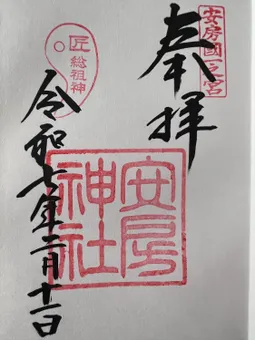 安房國一之宮
奉拝
安房神社
匠
総祖神
令和七年二月十一日